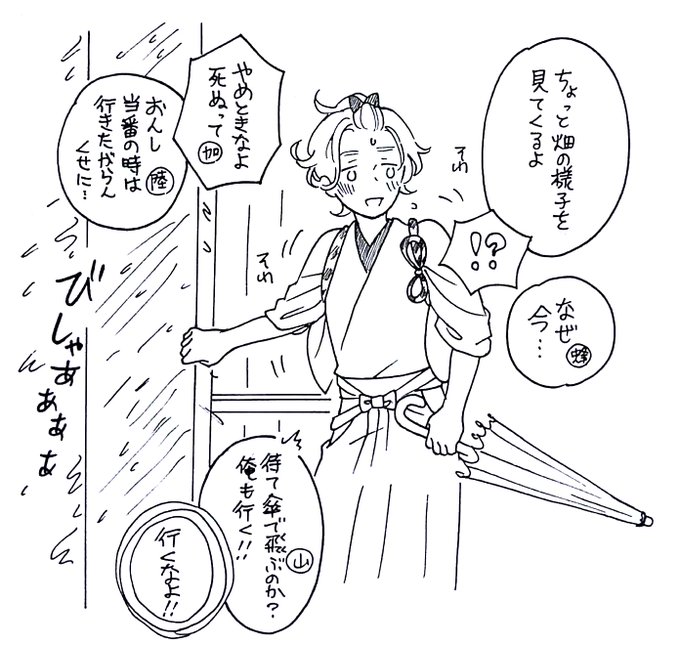 ちょっと畑の様子を
見てくるよ
そわ
!?
なぜ
今…
蜂
やめときなよ
死ぬって
加
おんし
当番の時は
行きたがらん
くせに…
陸
そわ
びしゃあぁぁぁ
待て傘で飛ぶのか?
俺も行く!!
山
行くなよ!!